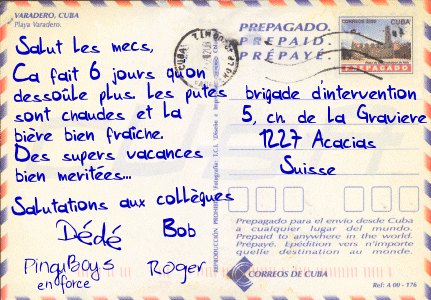 VARADERO, CUBA
Playa Varadero.
Salut les mecs,
Ca fait 6 jours qu'on
dessoûle plus. Les putes
sont chaudes et la
bière bien fraîche.
Des supers vacances
bien meritées...
Salutations aux collègues
Dédé
Bob
PinguBoys
en force
Roger
PREPAGADO.
PREPAID.
PRÉPAYÉ.
CORREOS CUBA
PREPAGADO
brigade d'intervention
5, ch de la Graviere
1227 Acacias
Suisse
Prepagado para el envío desde Cuba
a cualquier lugar del mundo.
Prepaid to anywhere in the world.
Prépayé. Epédition vers n'importe
quelle destination au monde.
CORREOS DE CUBA
Ref: A 00 - 176